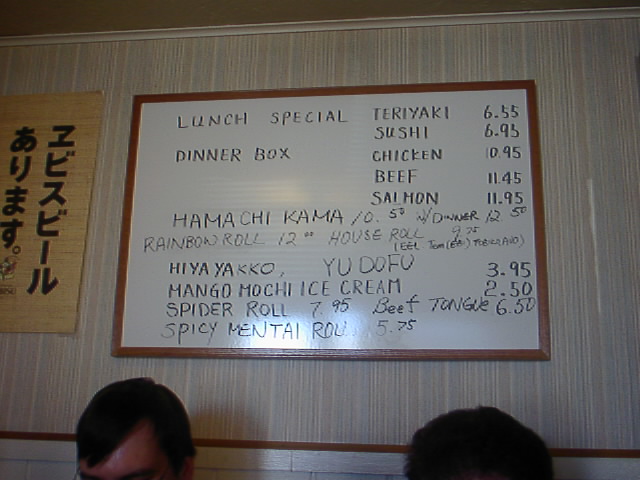 ヱビスビール
あります。
LUNCH SPECIAL TERIYAKI 6.55
SUSHI 6.95
DINNER BOX CHICKEN 10.95
BEEF 11.45
SALMON 11.95
HAMACHI KAMA 10.50 W/DINNER 12.50
RAINBOW ROLL 12.00 HOUSE ROLL 9.75
(EEL,
HIYAYAKKO, YUDOFU 3.95
MANGO MOCHI ICE CREAM 2.50
SPIDER ROLL 7.95 Beef TONGUE 6.50
SPICY MENTAI ROLL 5.75